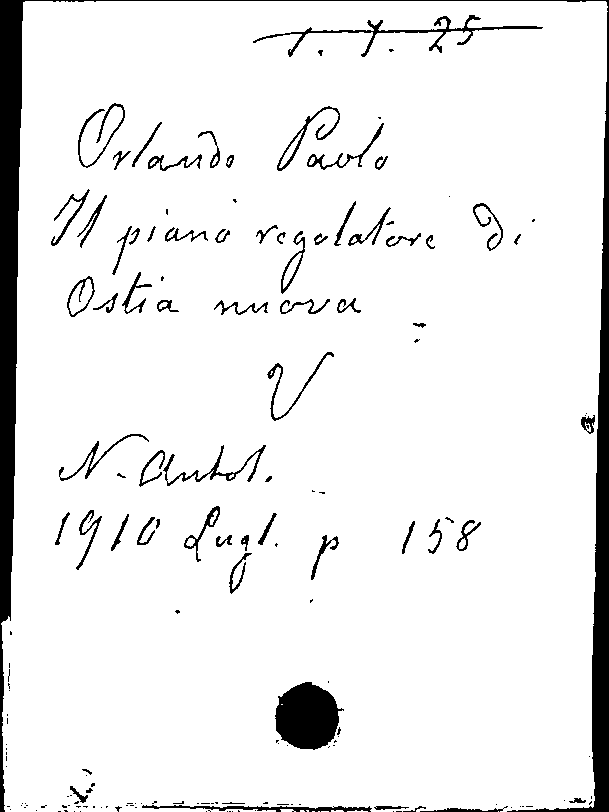 1. 7. 25
Orlando Paolo
Il piano regolatore di
Ostia nuova
V
N. Antol.
1910 Lugl. p 158